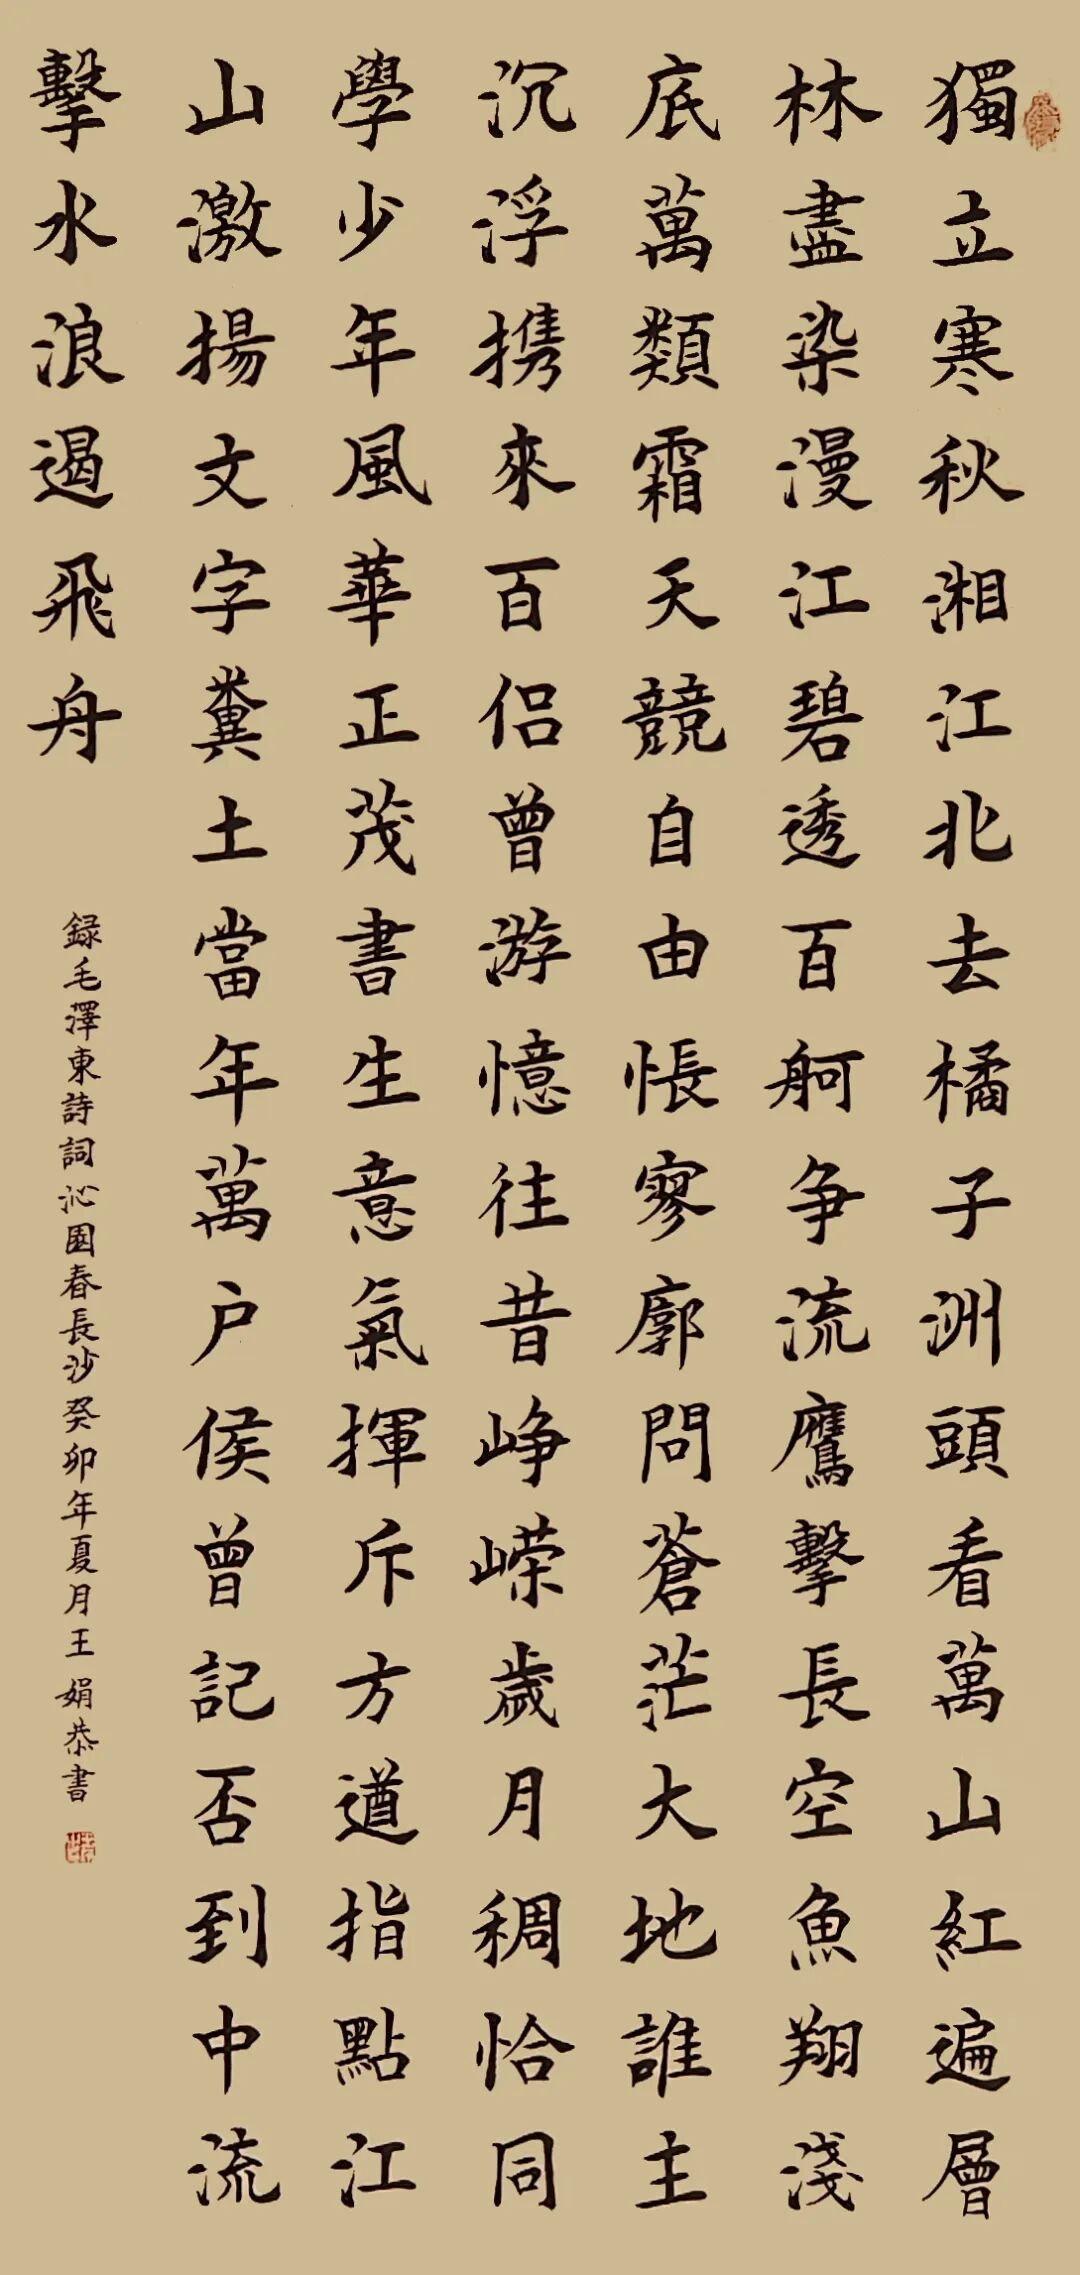 獨立寒秋湘江北去橘子洲頭看萬山紅遍層
林盡染漫江碧透百舸争流鷹擊長空魚翔淺
底萬類霜天競自由悵寥廓問蒼茫大地誰主
沉浮携來百侣曾游憶往昔峥嵘歲月稠恰同
學少年風華正茂書生意氣揮斥方遒指點江
山激揚文字糞土當年萬户侯曾記否到中流
擊水浪遏飛舟
録毛澤東詩詞沁園春長沙癸卯年夏月王娟恭書